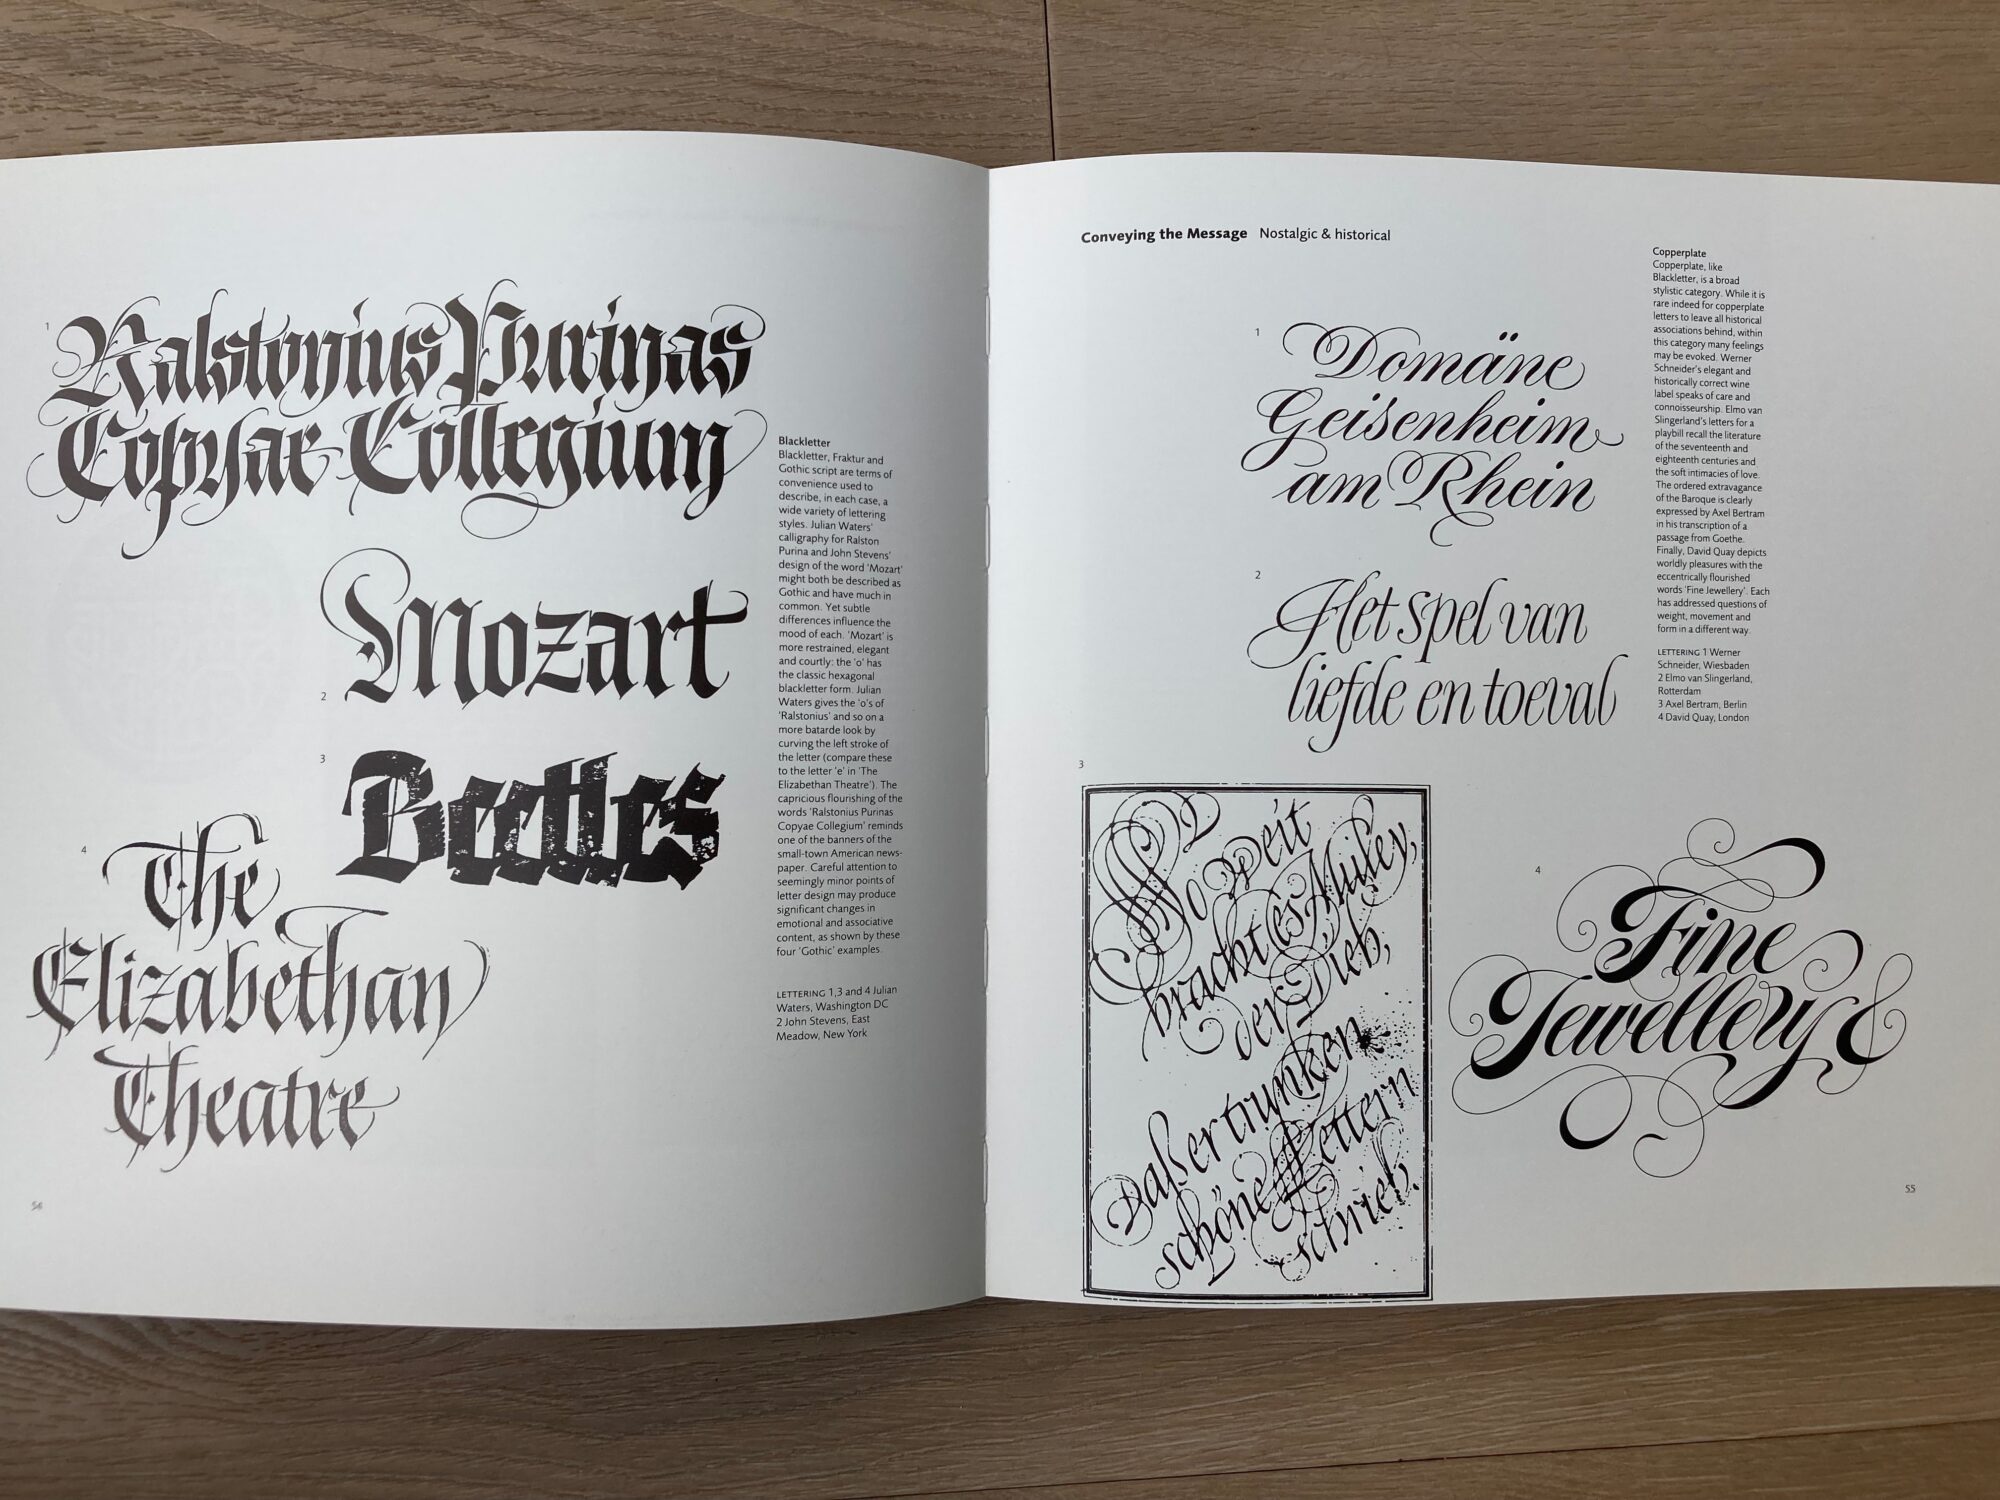 1
Ralstonius Purinas
Copyae Collegium
Mozart
2
3
Beetles
4
The
Elizabethan
Theatre
Blackletter
Blackletter, Fraktur and
Gothic script are terms of
convenience used to
describe, in each case, a
wide variety of lettering
styles. Julian Waters'
calligraphy for Ralston
Purina and John Stevens'
design of the word 'Mozart'
might both be described as
Gothic and have much in
common. Yet subtle
differences influence the
mood of each. 'Mozart' is
more restrained, elegant
and courtly: the 'o' has
the classic hexagonal
blackletter form. Julian
Waters gives the 'o's of
'Ralstonius' and so on a
more batarde look by
curving the left stroke of
the letter (compare these
to the letter 'e' in 'The
Elizabethan Theatre'). The
capricious flourishing of the
words 'Ralstonius Purinas
Copyae Collegium' reminds
one of the banners of the
small-town American news-
paper. Careful attention to
seemingly minor points of
letter design may produce
significant changes in
emotional and associative
content, as shown by these
four 'Gothic' examples.
LETTERING 1,3 and 4 Julian
Waters, Washington DC
2 John Stevens, East
Meadow, New York
Conveying the Message Nostalgic & historical
1
Domäne
Geisenheim
am Rhein
2
Het spel van
liefde en toeval
Copperplate
Copperplate, like
Blackletter, is a broad
stylistic category. While it is
rare indeed for copperplate
letters to leave all historical
associations behind, within
this category many feelings
may be evoked. Werner
Schneider's elegant and
historically correct wine
label speaks of care and
connoisseurship. Elmo van
Slingerland's letters for a
playbill recall the literature
of the seventeenth and
eighteenth centuries and
the soft intimacies of love.
The ordered extravagance
of the Baroque is clearly
expressed by Axel Bertram
in his transcription of a
passage from Goethe.
Finally, David Quay depicts
worldly pleasures with the
eccentrically flourished
words 'Fine Jewellery'. Each
has addressed questions of
weight, movement and
form in a different way.
LETTERING 1 Werner
Schneider, Wiesbaden
2 Elmo van Slingerland,
Rotterdam
3 Axel Bertram, Berlin
4 David Quay, London
3
So weit
bracht es Muley,
der Dieb,
Daß er trunken
schöne Lettern
schrieb.
4
Fine
Jewellery &
55